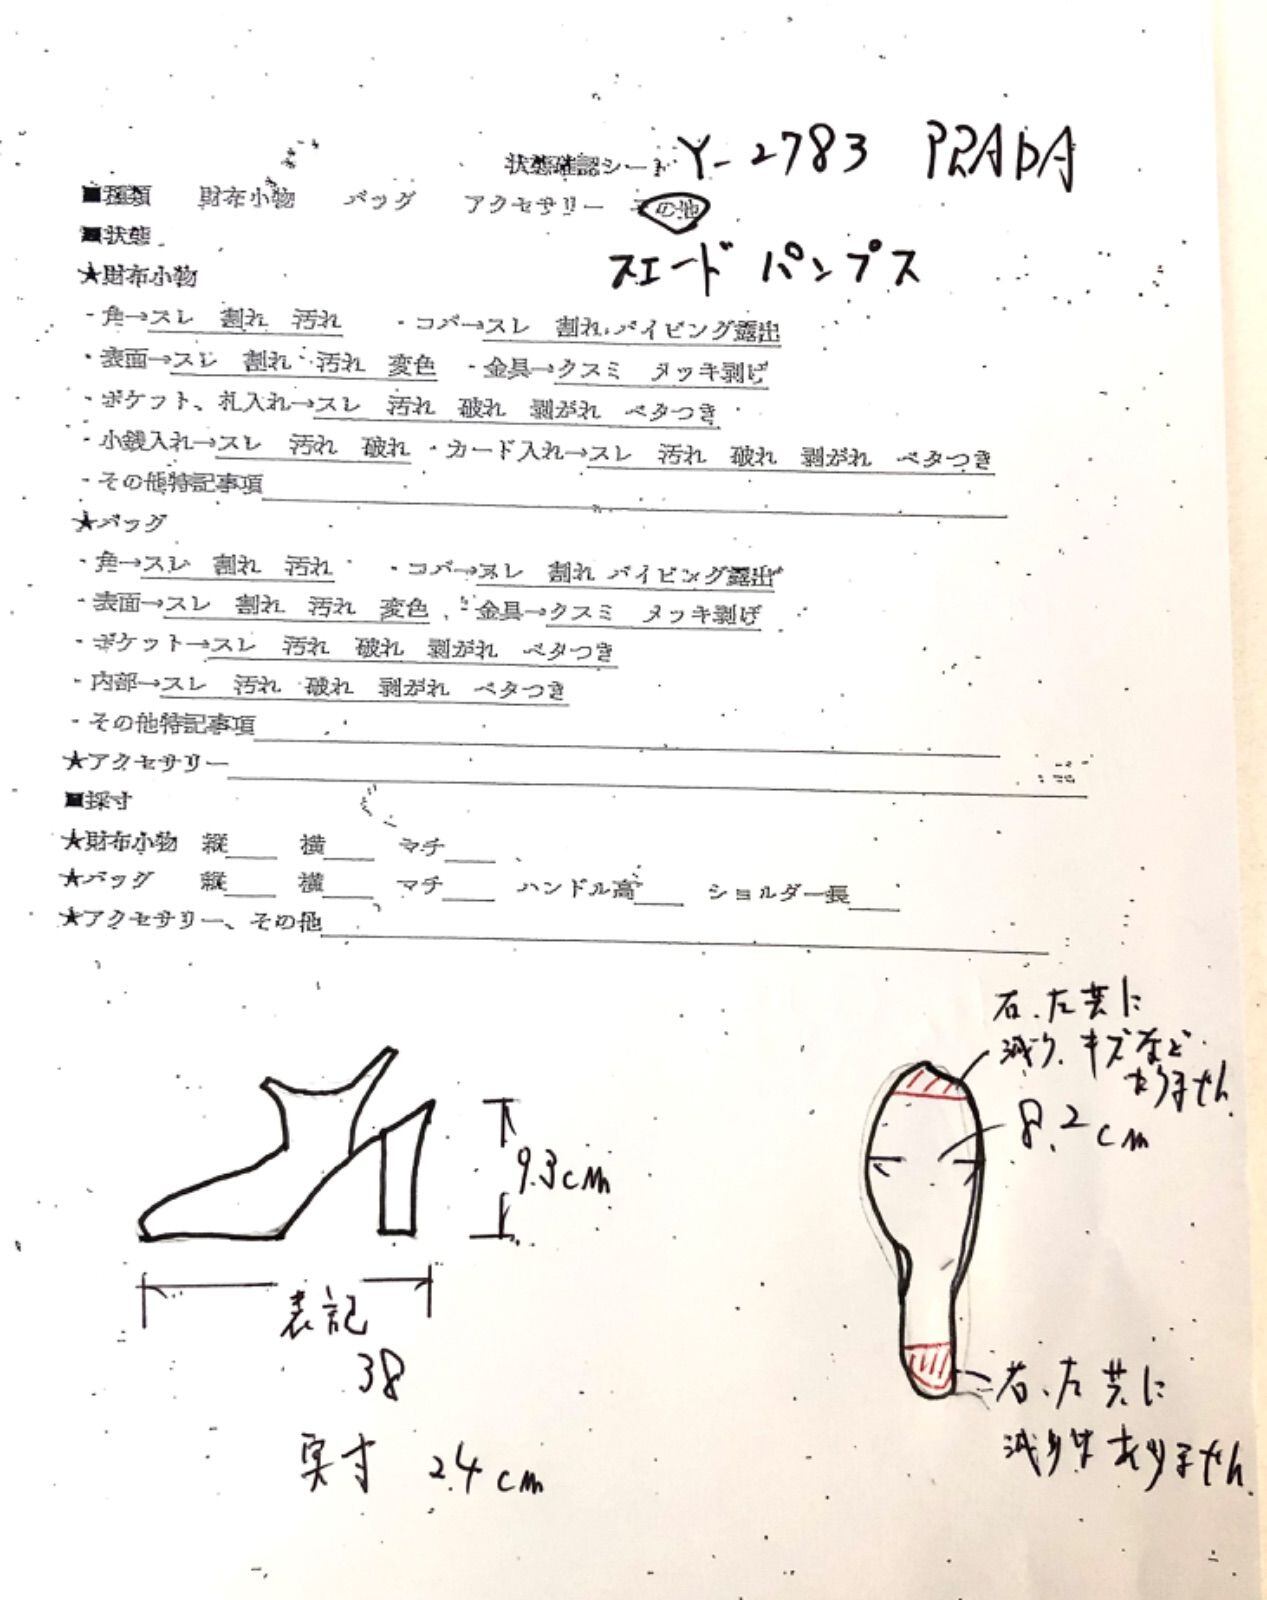 状態確認シート Y-2783 PRADA
■種類 財布小物 バッグ アクセサリー その他
■状態
スエード パンプス
★財布小物
・角→スレ 割れ 汚れ ・コバ→スレ 割れ パイピング露出
・表面→スレ 割れ 汚れ 変色 ・金具→クスミ メッキ剥げ
・ポケット、札入れ→スレ 汚れ 破れ 剥がれ ベタつき
・小銭入れ→スレ 汚れ 破れ ・カード入れ→スレ 汚れ 破れ 剥がれ ベタつき
・その他特記事項
★バッグ
・角→スレ 割れ 汚れ ・コバ→スレ 割れ パイピング露出
・表面→スレ 割れ 汚れ 変色 ・金具→クスミ メッキ剥げ
・ポケット→スレ 汚れ 破れ 剥がれ ベタつき
・内部→スレ 汚れ 破れ 剥がれ ベタつき
・その他特記事項
★アクセサリー
■採寸
★財布小物 縦 横 マチ
★バッグ 縦 横 マチ ハンドル高 ショルダー長
★アクセサリー、その他
右、左共に
減り、キズなど
ありません
8.2cm
9.3cm
表記
38
実寸 24cm
右、左共に
減りはありません。